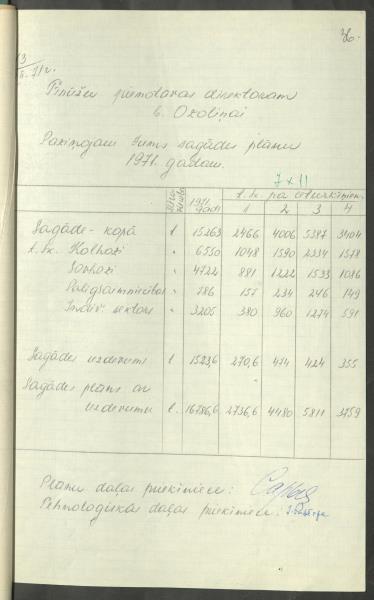 36.
13
71 v.
piemotavas direktoram
b. Ozoliņai
Paziņojam Jums sagādes plānu
1971. gadam.
7 x 11
1971. gadi t. sk. pa ceturkšņiem
1 2 3 4
Sagāde - kopā t 15263 2466 4006 5387 3404
t. sk. Kolhozi " 6550 1048 1590 2334 1578
Sovhozi " 4722 881 1222 1533 1086
Palīgsaimniecības " 786 157 234 246 149
Indiv. sektors " 3205 380 960 1274 591
Sagādes uzdevums t. 1523,6 270,6 474 424 355
Sagādes plāns ar
uzdevumu t. 16786,6 2736,6 4480 5811 3759
Plānu daļas priekšniece:
Tehnoloģiskās daļas priekšniece: